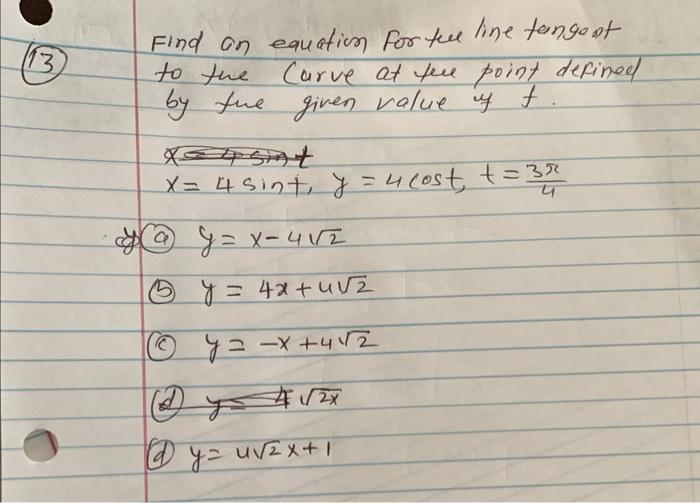 13
Find an equation for the line tangent
to the Curve at the point defined
by the given value of t.
x = 4 sin t
x = 4 sint, y = 4 cost, t = 3π/4
(a) y = x - 4√2
(b) y = 4x + 4√2
(c) y = -x + 4√2
(d) y = 4√2x
(d) y = 4√2 x + 1